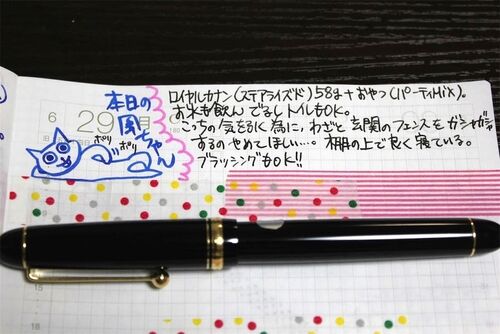 本日の
風ちゃん
ポリ
ポリ
6
29
月
180
ロイヤルカナン(ステアライズド)58g+おやつ(パーティMix)。
お水も飲んでるしトイレもOK。
こっちの気をひく為に、わざと玄関のフェンスをガシガシ
するのやめてほしい…。棚の上で良く寝ている。
ブラッシングもOK!!